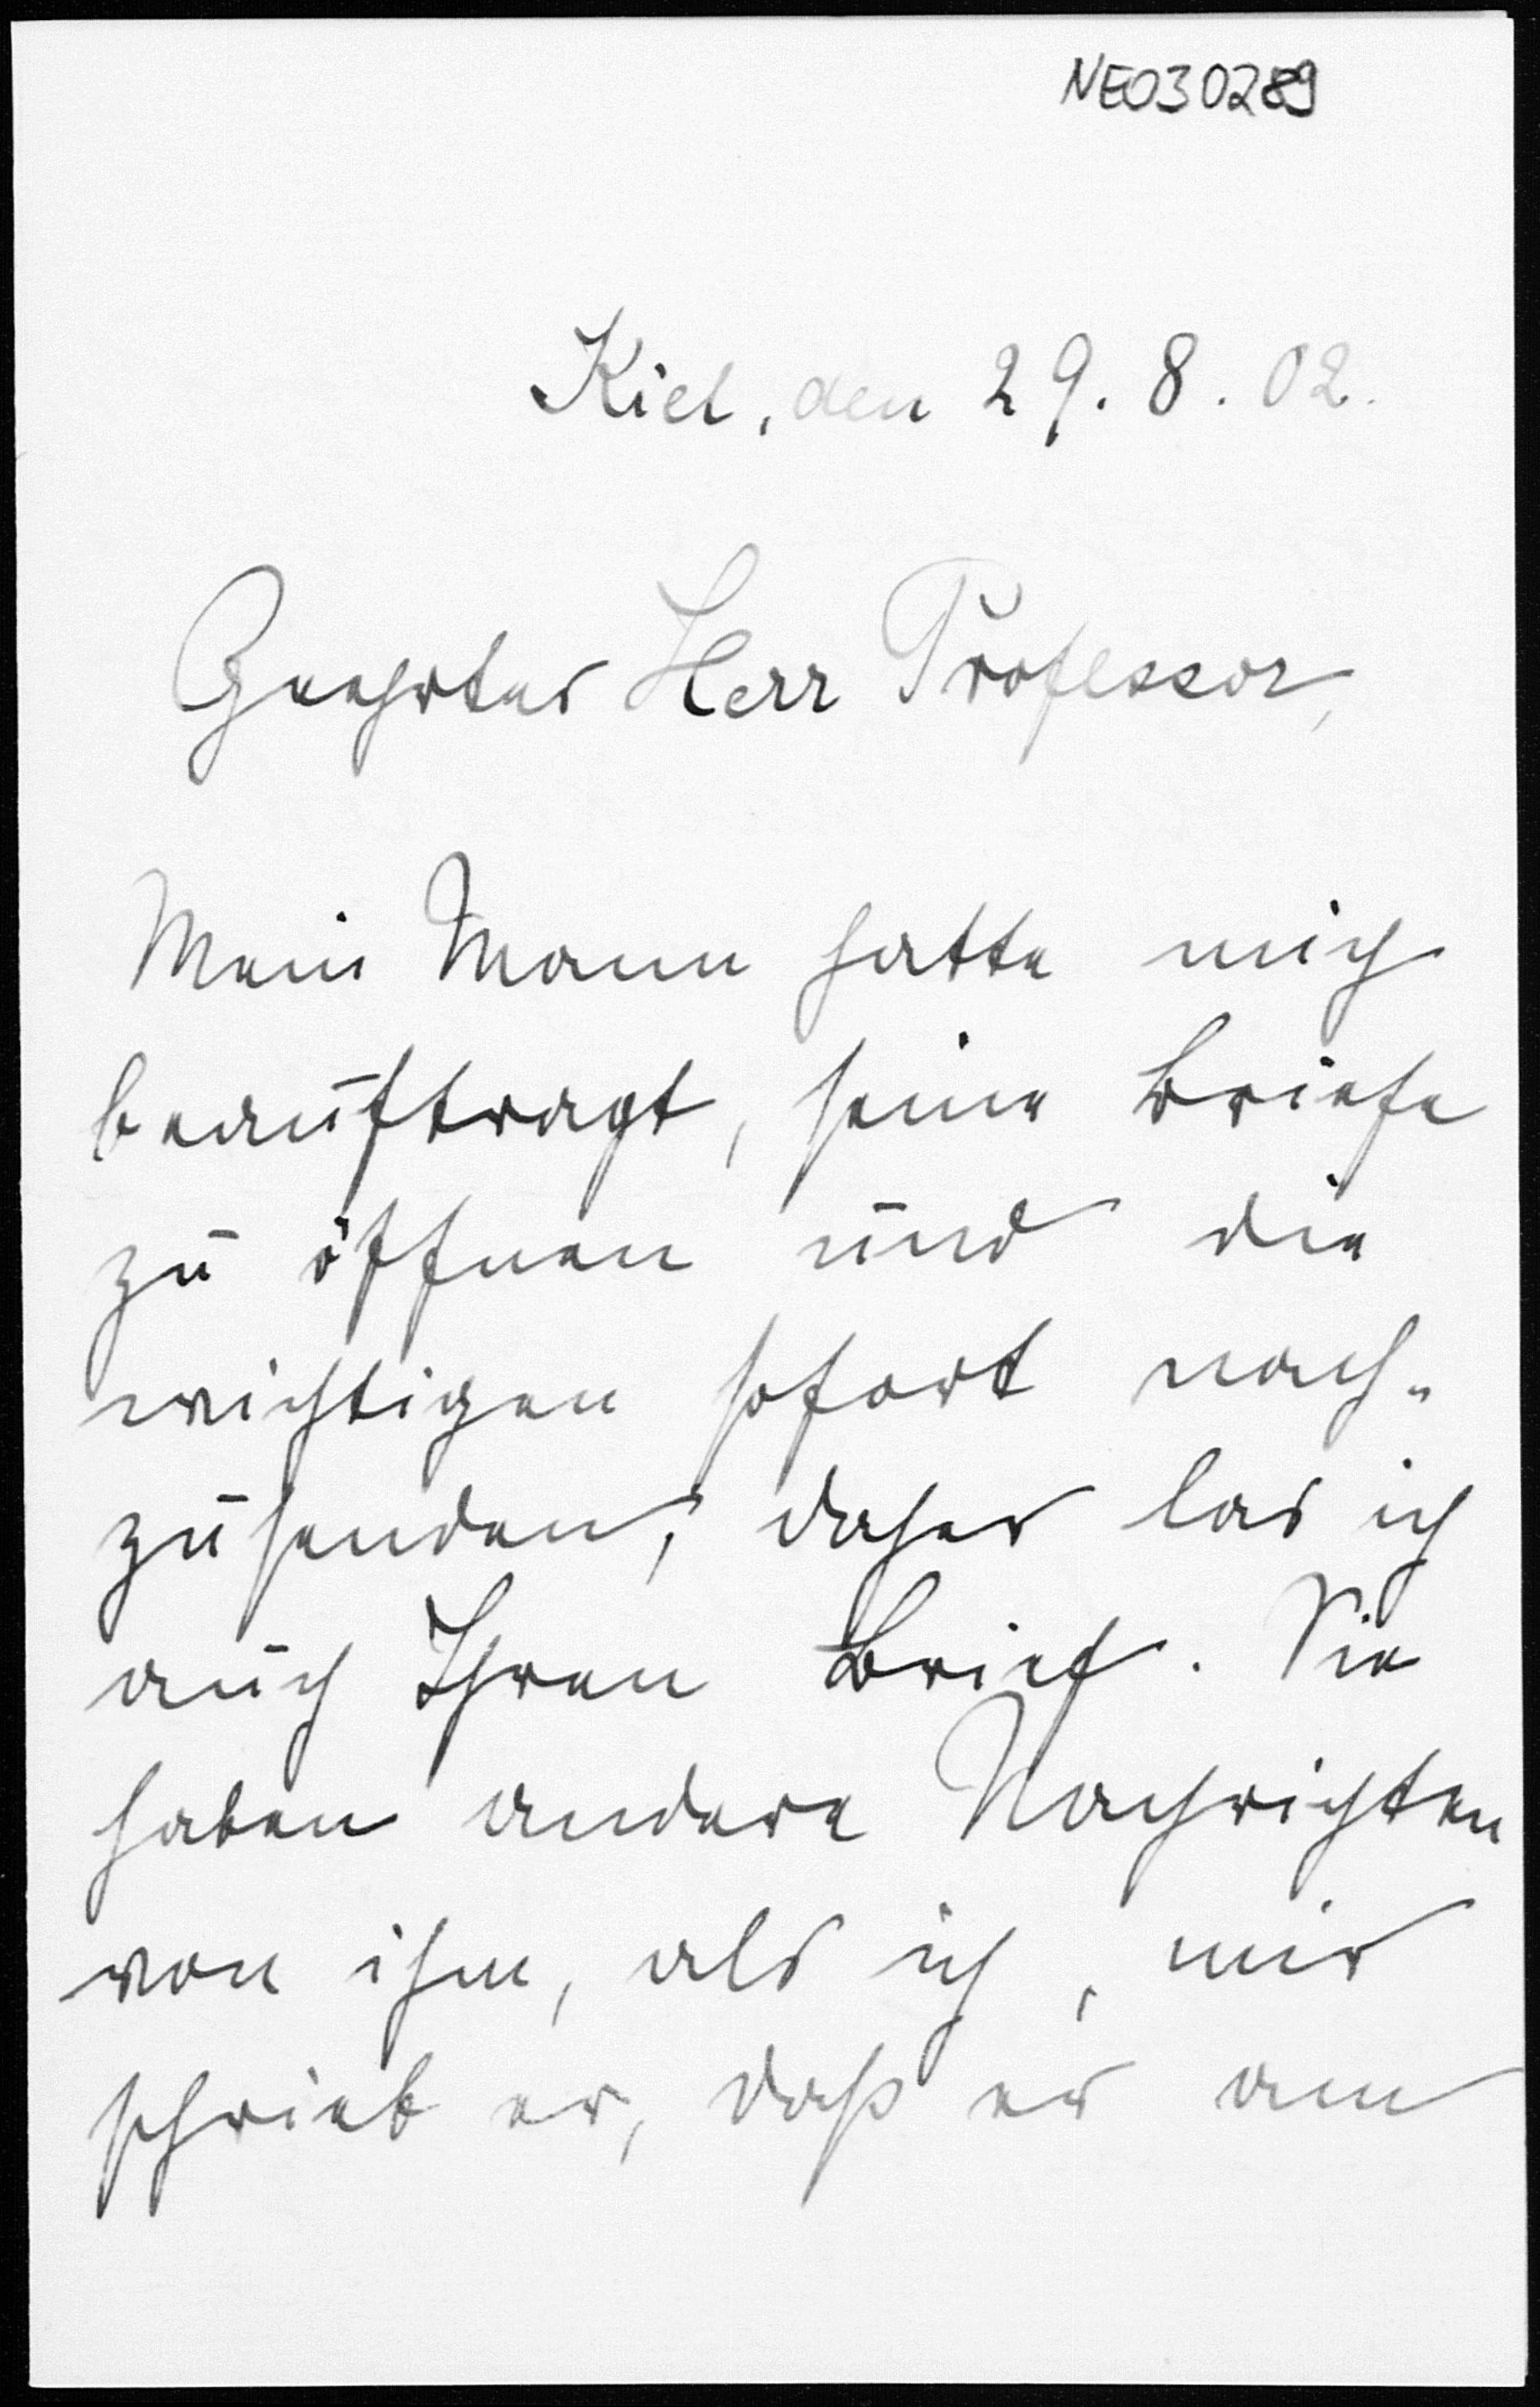 NE030289
Kiel, den 29. 8. 02.
Geehrter Herr Professor,
Mein Mann hatte mich
beauftragt, seine Briefe
zu öffnen und die
wichtigen sofort nach-
zusenden; daher las ich
auch Ihren Brief. Sie
haben andere Nachrichten
von ihm, als ich, mir
schrieb er, daß er am